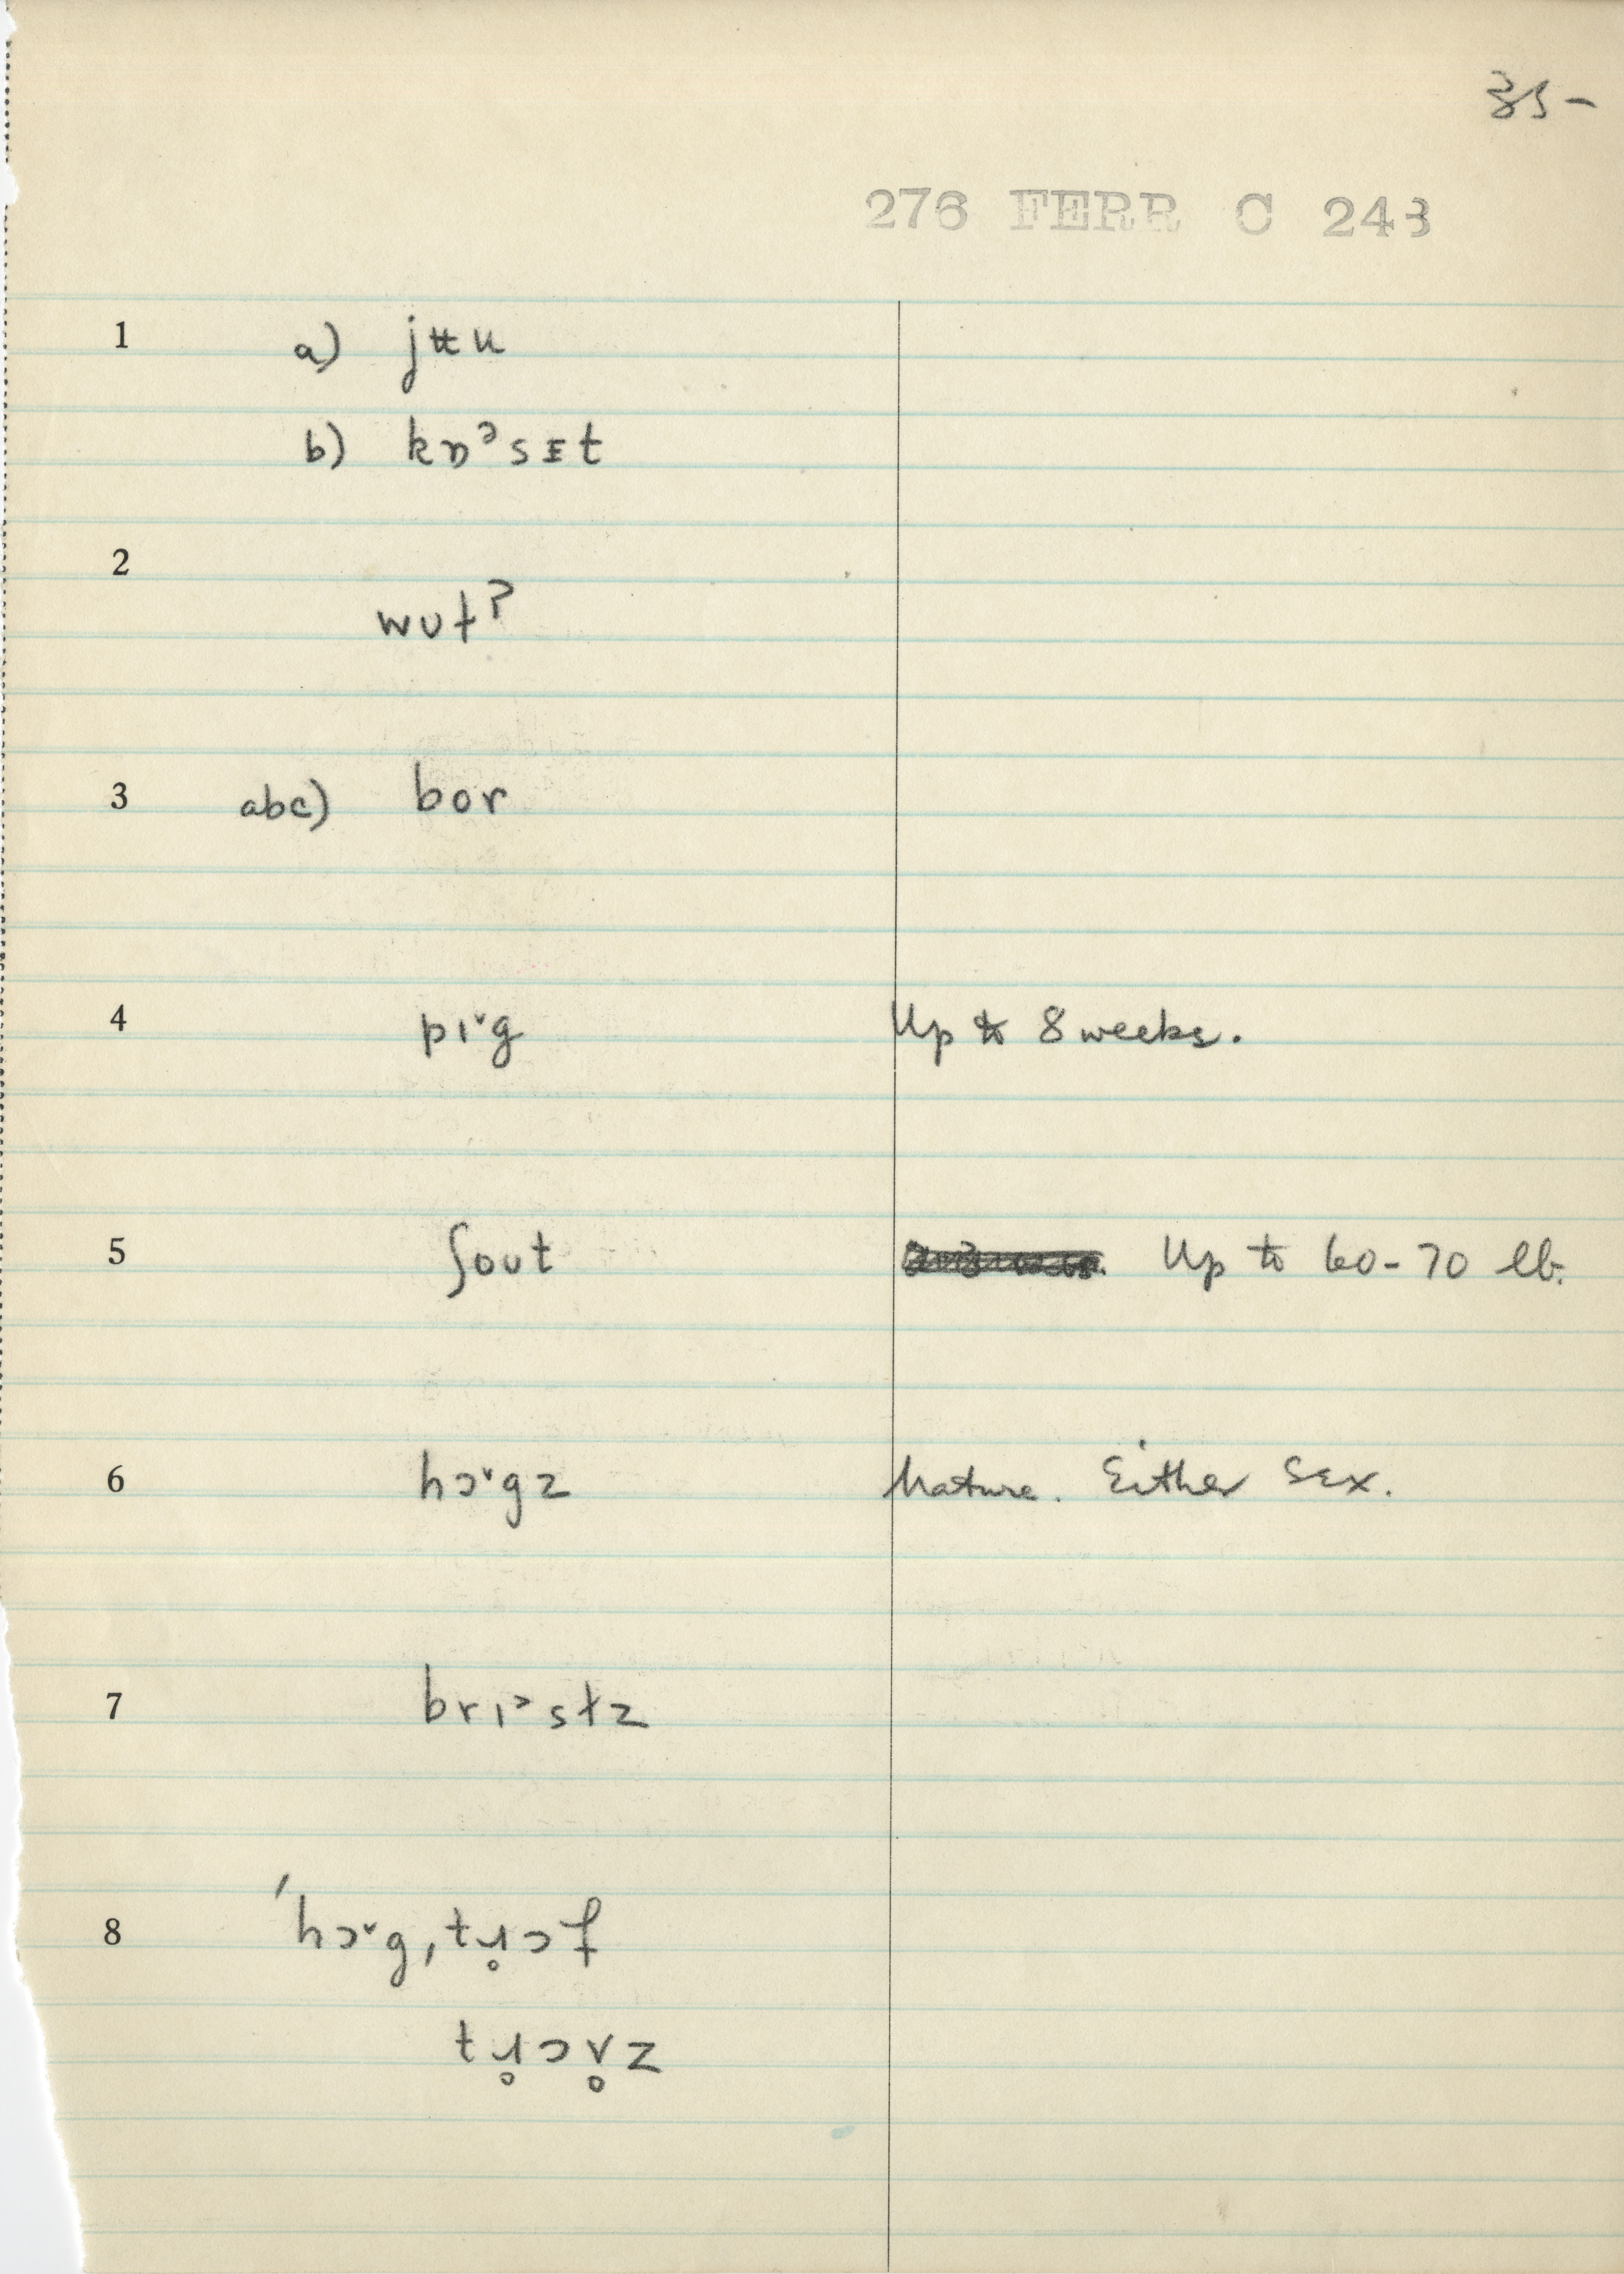 35-
276 FERR C 243
1 a) jʉu
b) kɒᵊsᴇt
2
wut?
3 abc) bor
4 pɪ˅g Up to 8 weeks.
5 ʃout Up to 60-70 lb.
6 hɔ˅gz Mature. Either Sex.
7 brɪ˃stz
8 ˈhɔ˅gˌtɹ̥ɔf
tɹ̥ɔv̥z